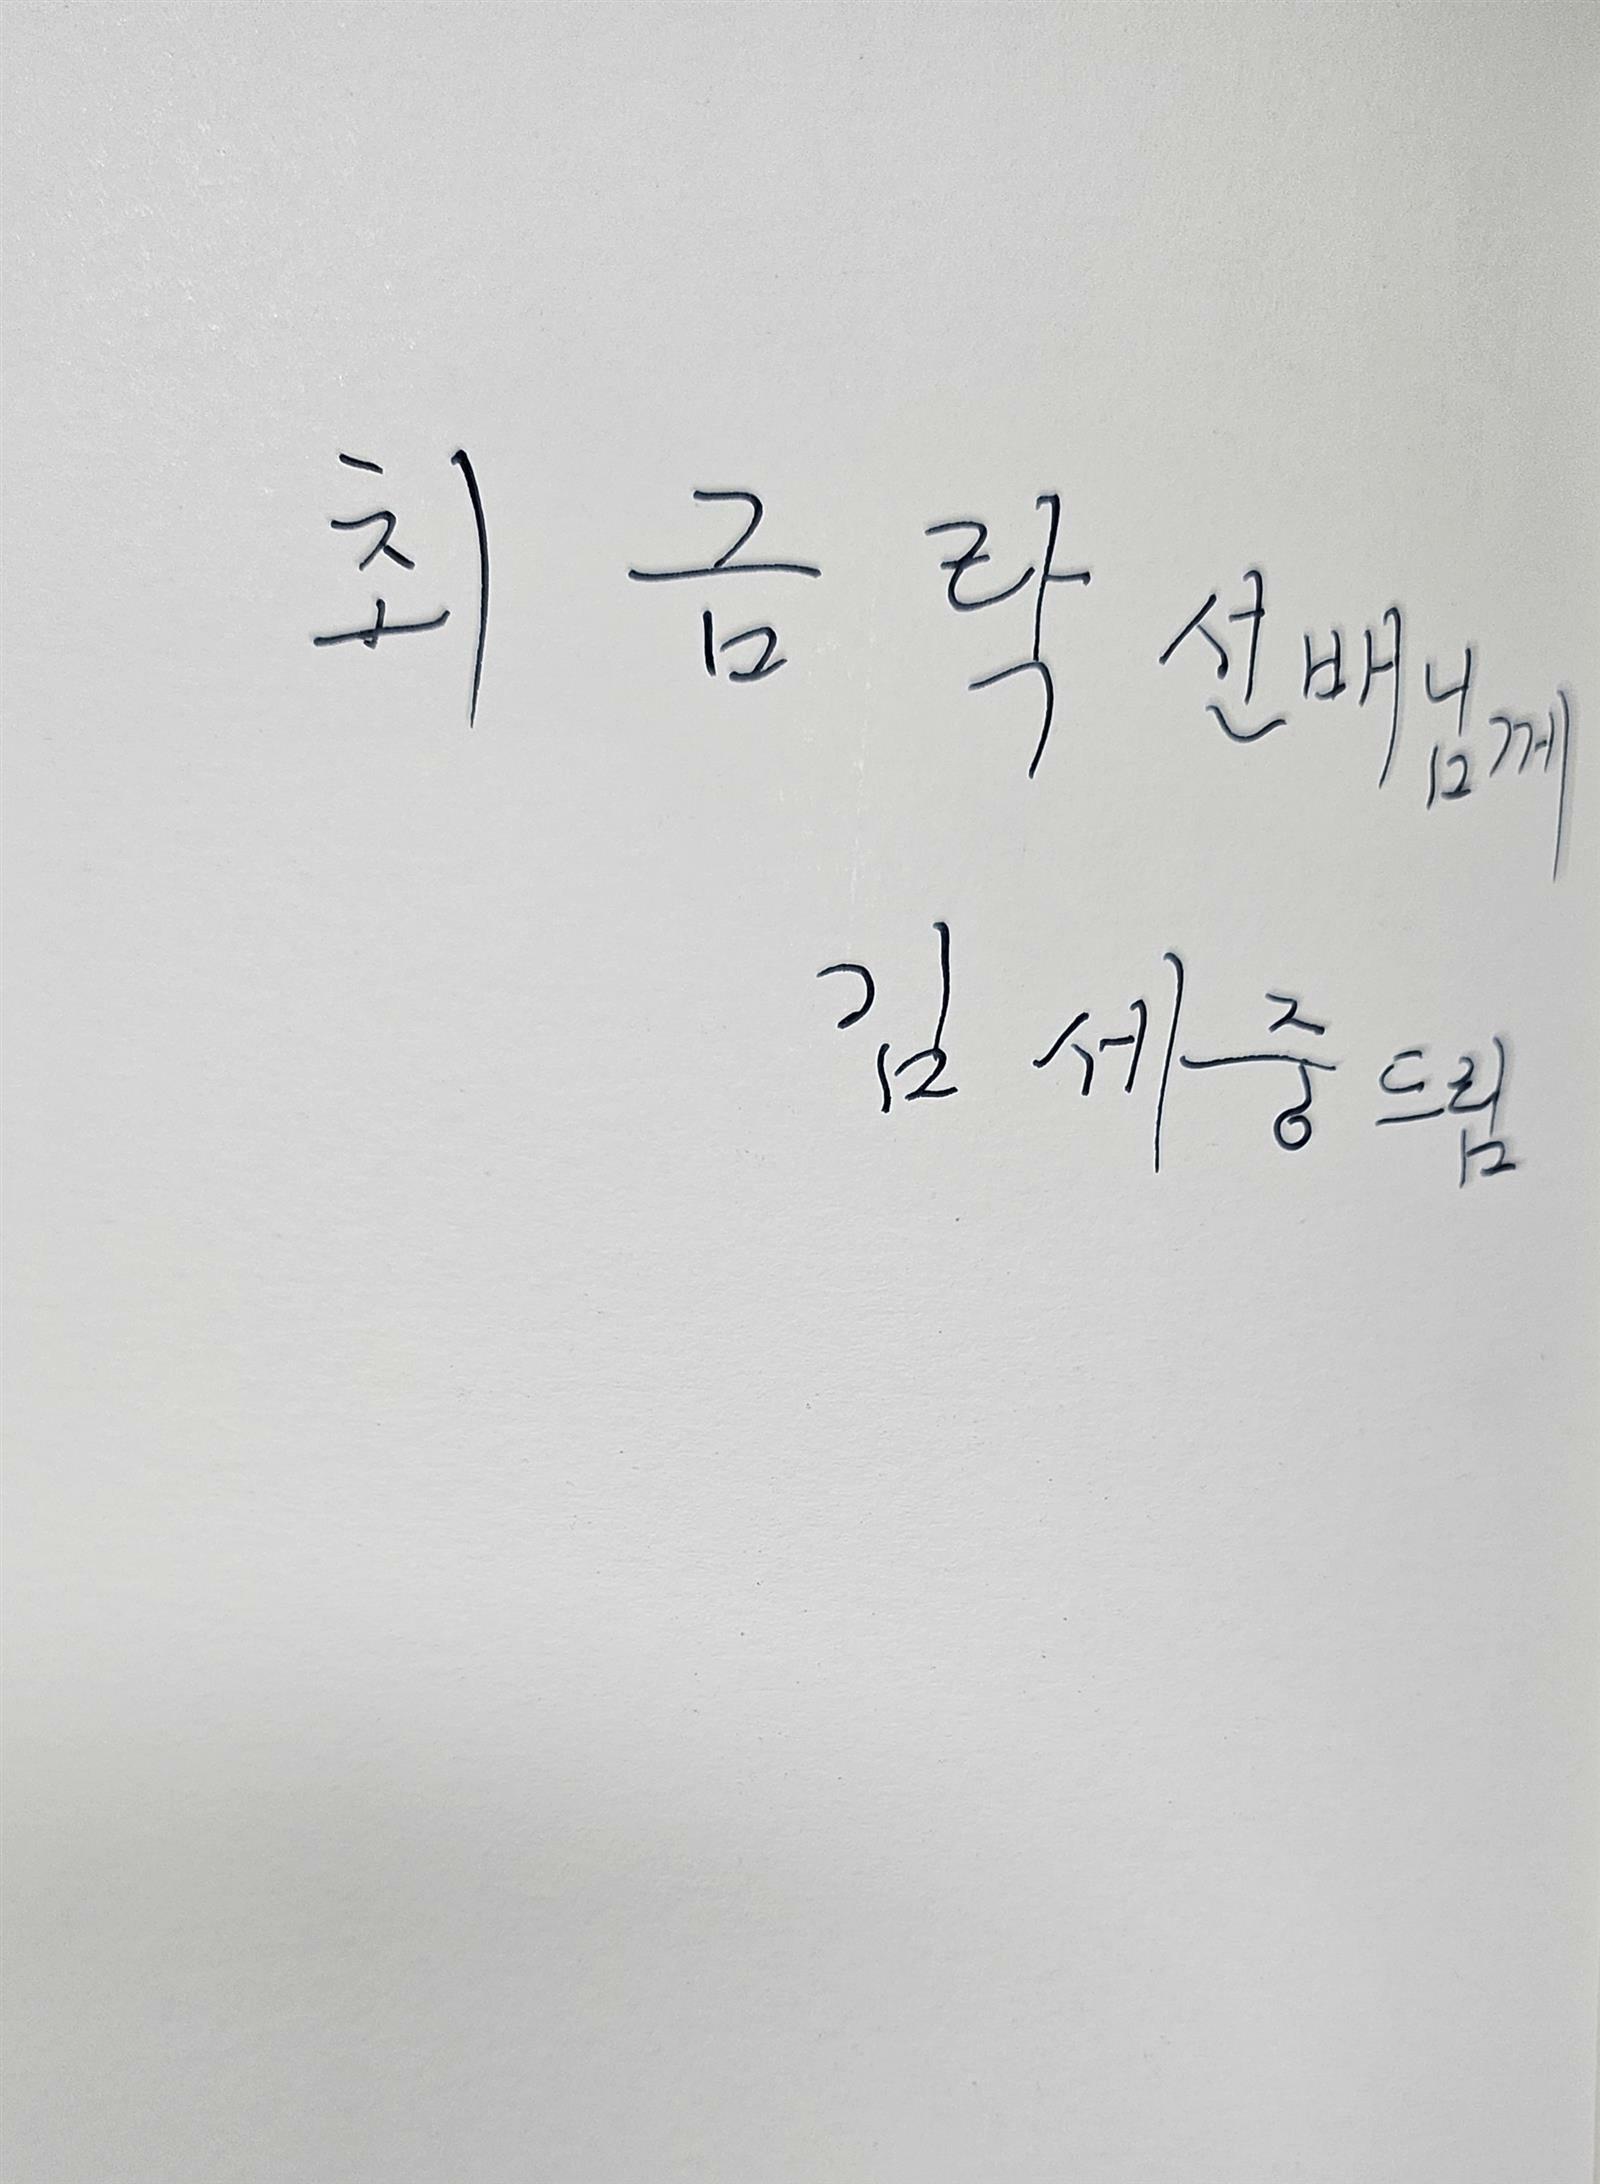 최금락 선배님께
김세중 드림